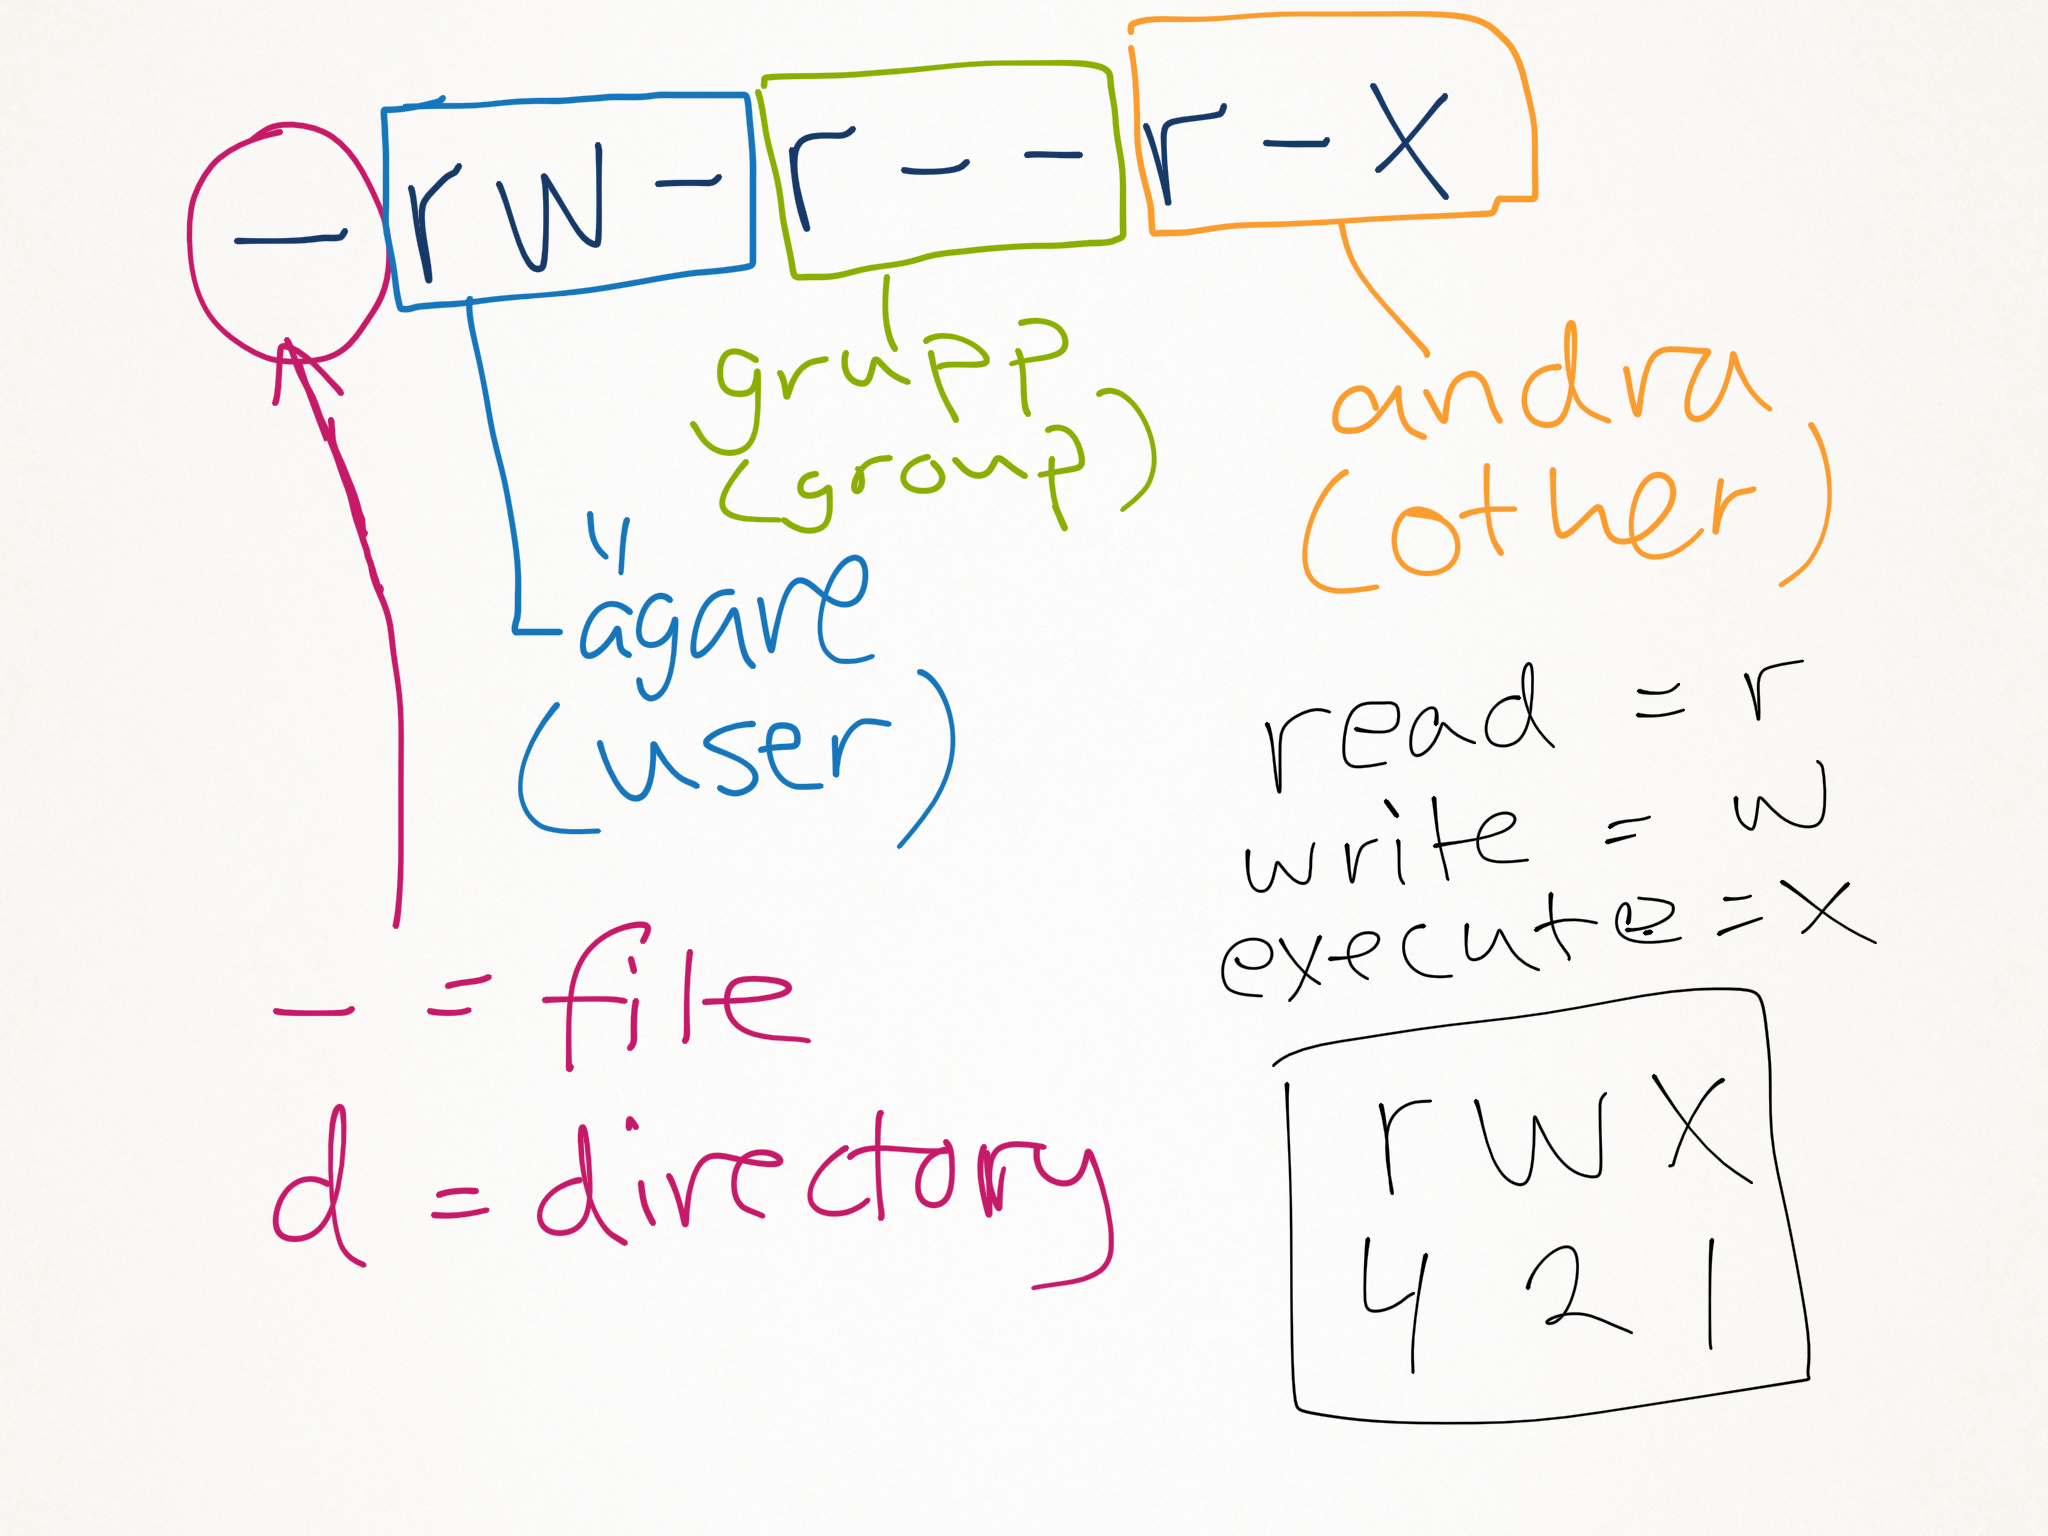 - rw- r-- r-x
grupp
(group)
andra
(other)
ägare
(user)
- = file
d = directory
read = r
write = w
execute = x
r w x
4 2 1